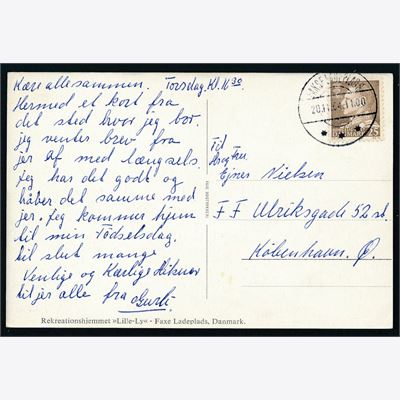 Kære allesammen. Torsdag. Kl. 11 30
Hermed et kort fra
det sted hvor jeg bor.
jeg venter brev fra
jer af med længsels.
Jeg har det godt og
håber det samme med
jer. Jeg kommer hjem
til min Fødselsdag.
til slut mange
Venlige og Kærlige Hilsner
til jer alle fra Gurli.
Rekreationshjemmet »Lille-Ly« · Faxe Ladeplads, Danmark.
20.11. 11.00
25
Til
Hr og Fru
Ejner Nielsen
F F Ulriksgade 52 st.
København. Ø.